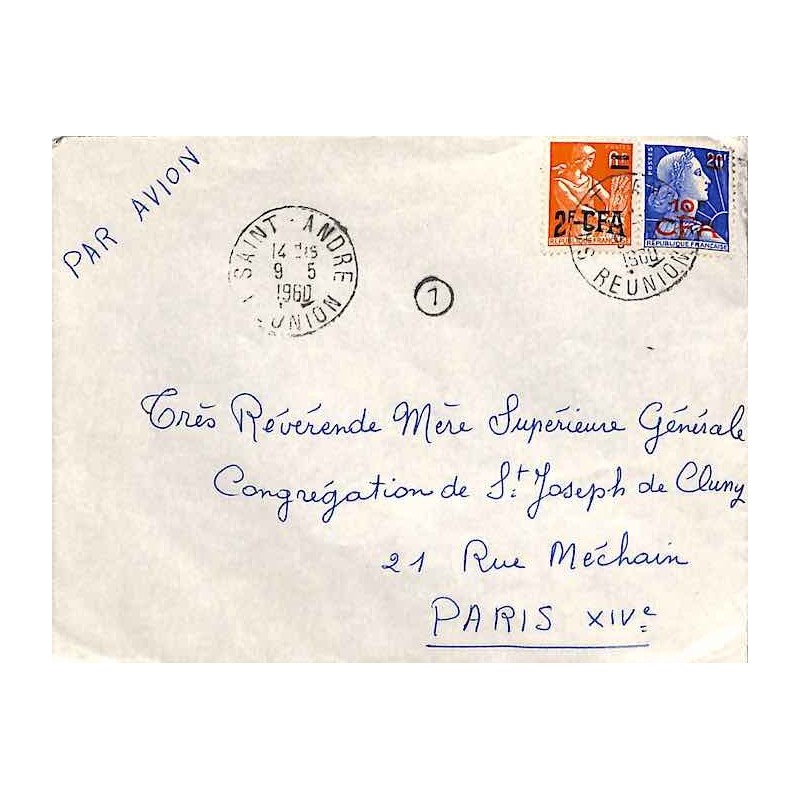 PAR AVION
SAINT-ANDRE
14 H15
9 5
1960
REUNION
2F-CFA
POSTES
20F
10F
CFA
REPUBLIQUE FRANÇAISE
1960
REUNION
1
Très Révérende Mère Supérieure Générale
Congrégation de St Joseph de Cluny
21 Rue Méchain
PARIS XIVe